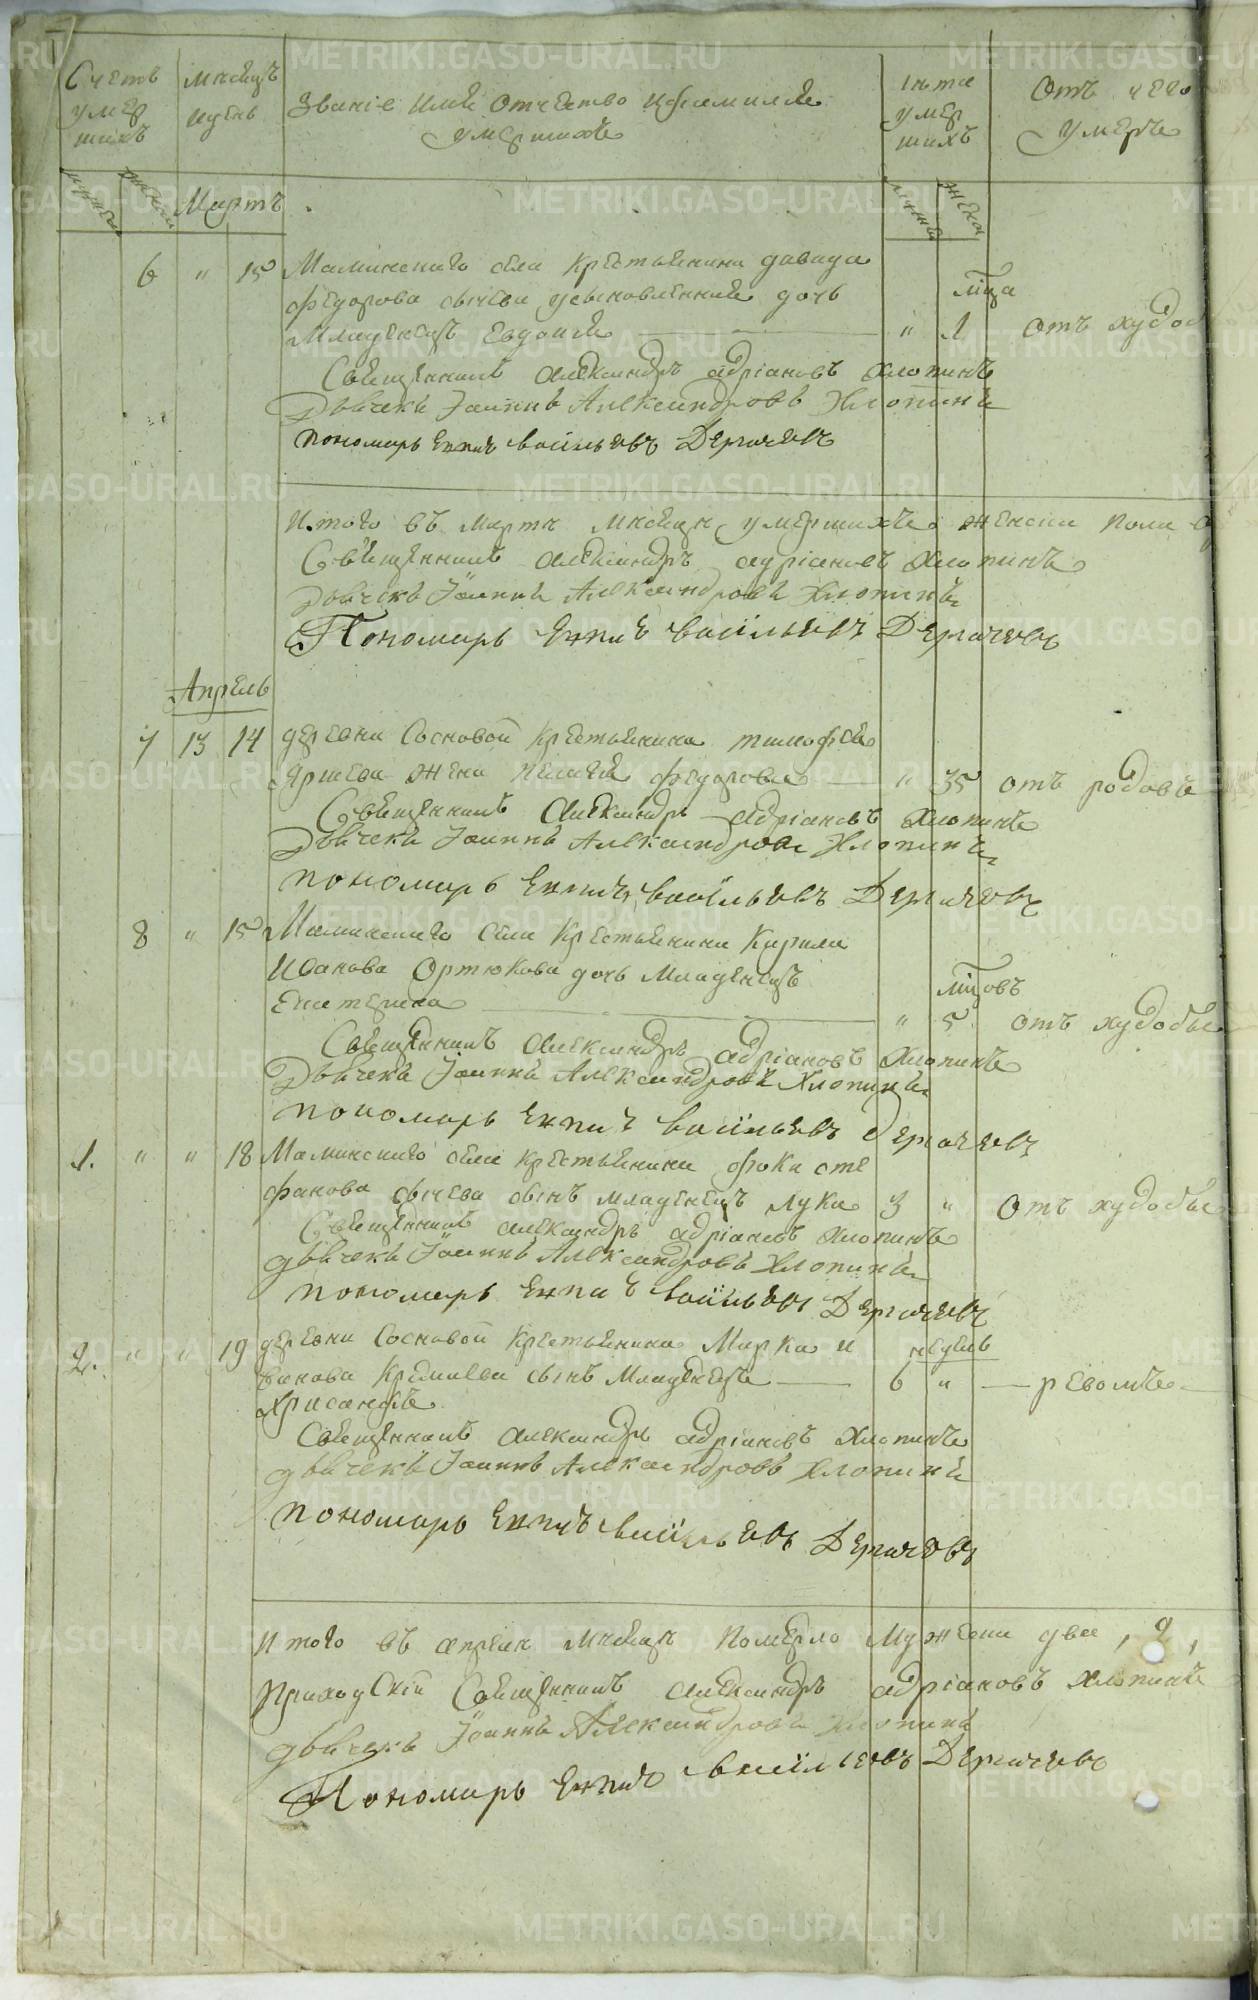 Счетъ умер шихъ
мѣсяцъ и день
Званіе имя отчество и фамилія умершихъ
лѣта умер шихъ
Отъ чего умерла
Мартъ
6 " 15 Маминскаго села крестьянина давида
федорова сычева усыновленная дочь мца
Младенецъ Евдокія " 1 отъ худоб
Священникъ александръ адріановъ хлопинъ
Дьячекъ Іоаннъ Александровъ Хлопинъ
пономарь васильевъ Дергачевъ
Итого въ марта мѣсяца умершихъ женска пола
Священникъ александръ адріановъ хлопинъ
Дьячекъ Іоаннъ Александровъ Хлопинъ
Пономарь васильевъ Дергачевъ
Апрель
7 13 14 деревни Сосновой крестьянина тимофея
жена пелагея федорова " 35 отъ родовъ
Священникъ александръ адріановъ хлопинъ
Дьячекъ Іоаннъ Александровъ Хлопинъ
пономарь васильевъ Дергачевъ
8 " 15 Маминскаго села крестьянина Кирила
Иванова Ортюкова дочь младенецъ мцовъ
Екатерина " 5 отъ худобы
Священникъ александръ адріановъ хлопинъ
Дьячекъ Іоаннъ Александровъ Хлопинъ
пономарь васильевъ Дергачевъ
1. " " 18 Маминскаго села крестьянина фоки сте
фанова сычева сынъ младенецъ лука 3 " отъ худобы
Священникъ александръ адріановъ хлопинъ
дьячекъ Іоаннъ Александровъ Хлопинъ
пономарь васильевъ Дергачевъ
2. " " 19 деревни Сосновой крестьянина Марка и недель
ванова сынъ младенецъ 6 " ревомъ
Хрисанфъ
Священникъ александръ адріановъ хлопинъ
дьячекъ Іоаннъ Александровъ Хлопинъ
пономарь васильевъ Дергачевъ
Итого въ апреле мѣсяце померло мужеска два, 2,
Приходскій Священникъ александръ адріановъ хлопинъ
дьячекъ Іоаннъ Александровъ Хлопинъ
Пономарь васильевъ Дергачевъ
METRIKI.GASO-URAL.RU